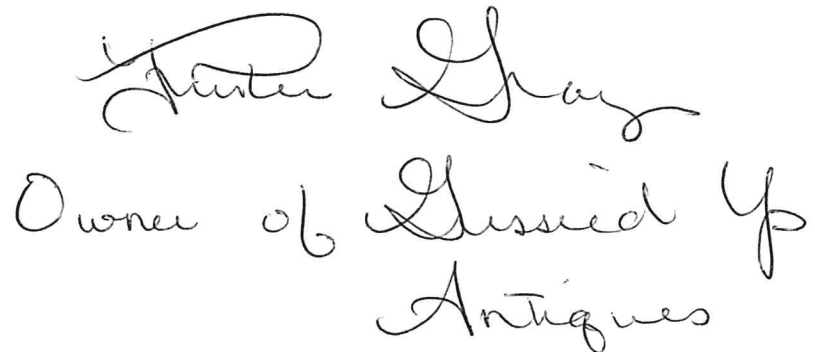 Gray
Owner of Gussied Up
Antiques